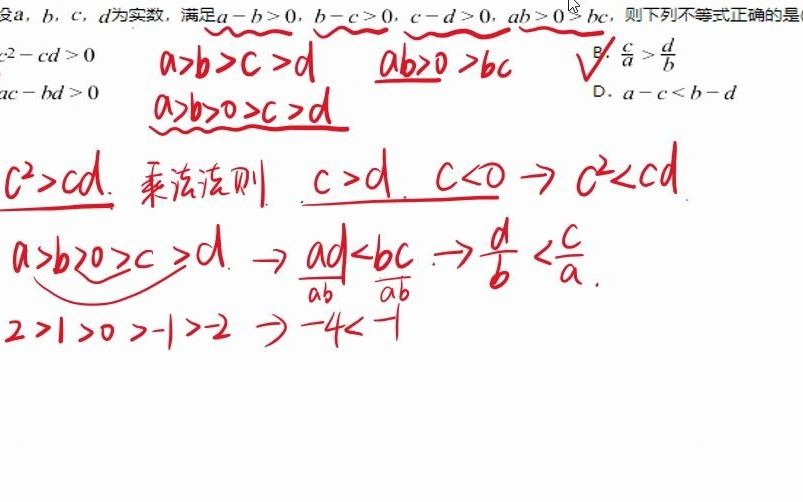 设a，b，c，d为实数，满足a－b＞0，b－c＞0，c－d＞0，ab＞0＞bc，则下列不等式正确的是(
c²－cd＞0
B．c/a＞d/b
ac－bd＞0
D．a－c＜b－d
a>b>c>d ab>0>bc
a>b>0>c>d
c²>cd. 乘法法则 c>d. c<0 → c²<cd.
a>b>0>c>d. → ad/ab<bc/ab. → d/b<c/a.
2>1>0>-1>-2 → -4<-1